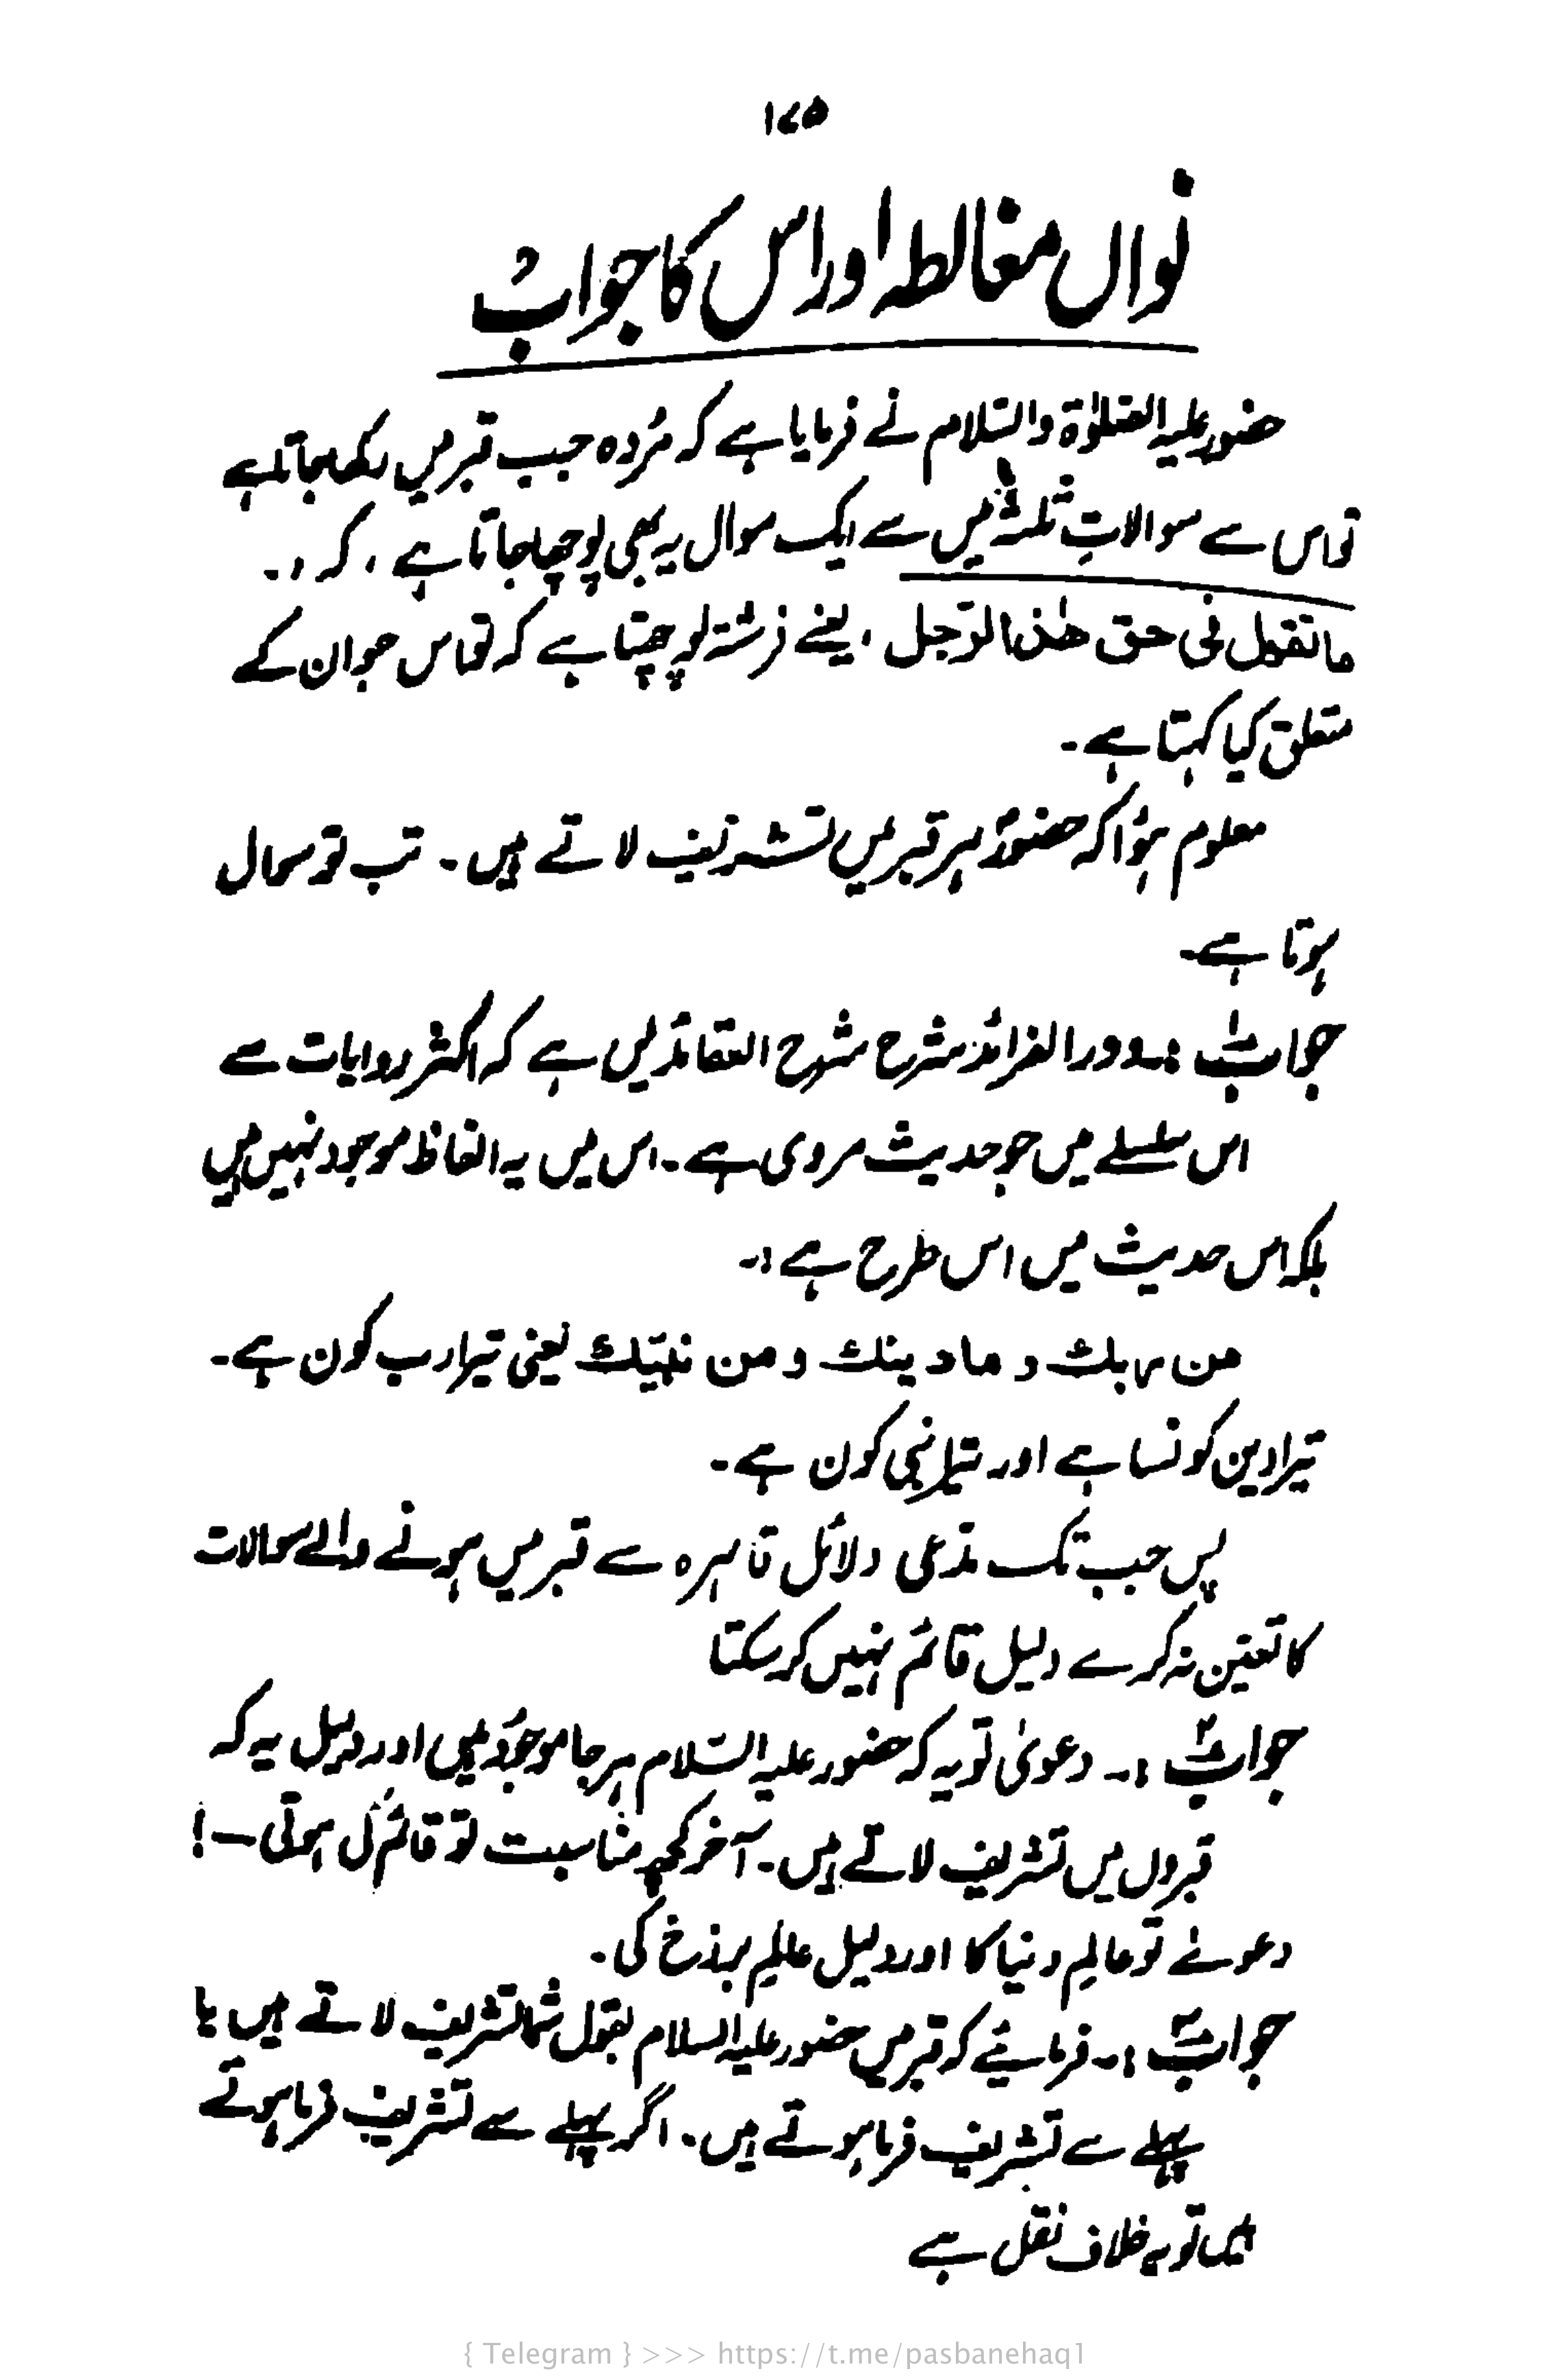 ۱۷۵
نواں مغالطہ اور اس کا جواب
حضور علیہ الصّلوٰۃ والسّلام نے فرمایا ہے کہ مُردہ جب قبر میں رکھا جاتا ہے
تو اس سے سوالاتِ ثلٰثہ میں سے ایک سوال یہ بھی پوچھا جاتا ہے، کہ :۔
ماتقول فی حق ھٰذا الرّجل ، یعنے فرشتہ پوچھتا ہے کہ تو اس جوان کے
متعلق کیا کہتا ہے۔
معلوم ہؤا کہ حضورؐ ہر قبر میں تشریف لاتے ہیں۔ تب تو سوال
ہوتا ہے۔
جواب۱ :۔ درر الفرائد شرح شرح العقائد میں ہے کہ اکثر روایات سے
اس سلسلے میں جو حدیث مروی ہے۔ اس میں یہ الفاظ موجود نہیں ہیں
بلکہ اس حدیث میں اس طرح ہے :۔
من ربک و مادینک و من نبیّک یعنی تیرا رب کون ہے۔
تیرا دین کونسا ہے اور تیرا نبی کون ہے۔
پس جب تک مدّعی دلائل قاہرہ سے قبر میں ہونے والے سوالات
کا تعیّن نہ کرے دلیل قائم نہیں کر سکتا
جواب۲ :۔ دعویٰ تو یہ کہ حضور علیہ السّلام ہر جا موجُود ہیں اور دلیل یہ کہ
قبروں میں تشریف لاتے ہیں۔ آخر کچھ مناسبت تو قائم کی ہوتی —!
دعوےٰ تو عالمِ دنیا کا اور دلیل عالمِ برزخ کی۔
جواب۳ :۔ فرمایئے کہ قبر میں حضور علیہ السلام بقول شما تشریف لاتے ہیں یا
پہلے سے تشریف فرما ہوتے ہیں۔ اگر پہلے سے تشریف فرما ہوتے
ہیں تو یہ خلاف نقل ہے
{ Telegram } >>> https://t.me/pasbanehaq1